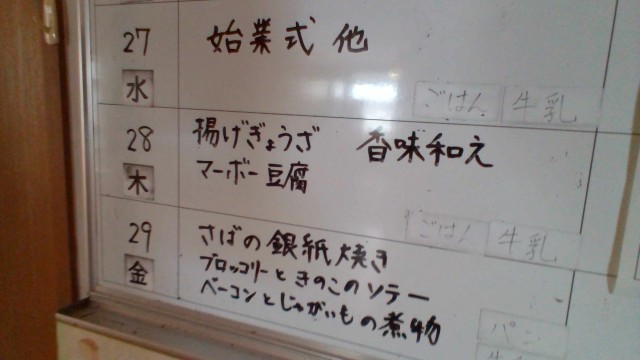 27 始業式 他
水
ごはん 牛乳
28 揚げぎょうざ 香味和え
木 マーボー豆腐
ごはん 牛乳
29 さばの銀紙焼き
金 ブロッコリーときのこのソテー
ベーコンとじゃがいもの煮物
パン
牛乳